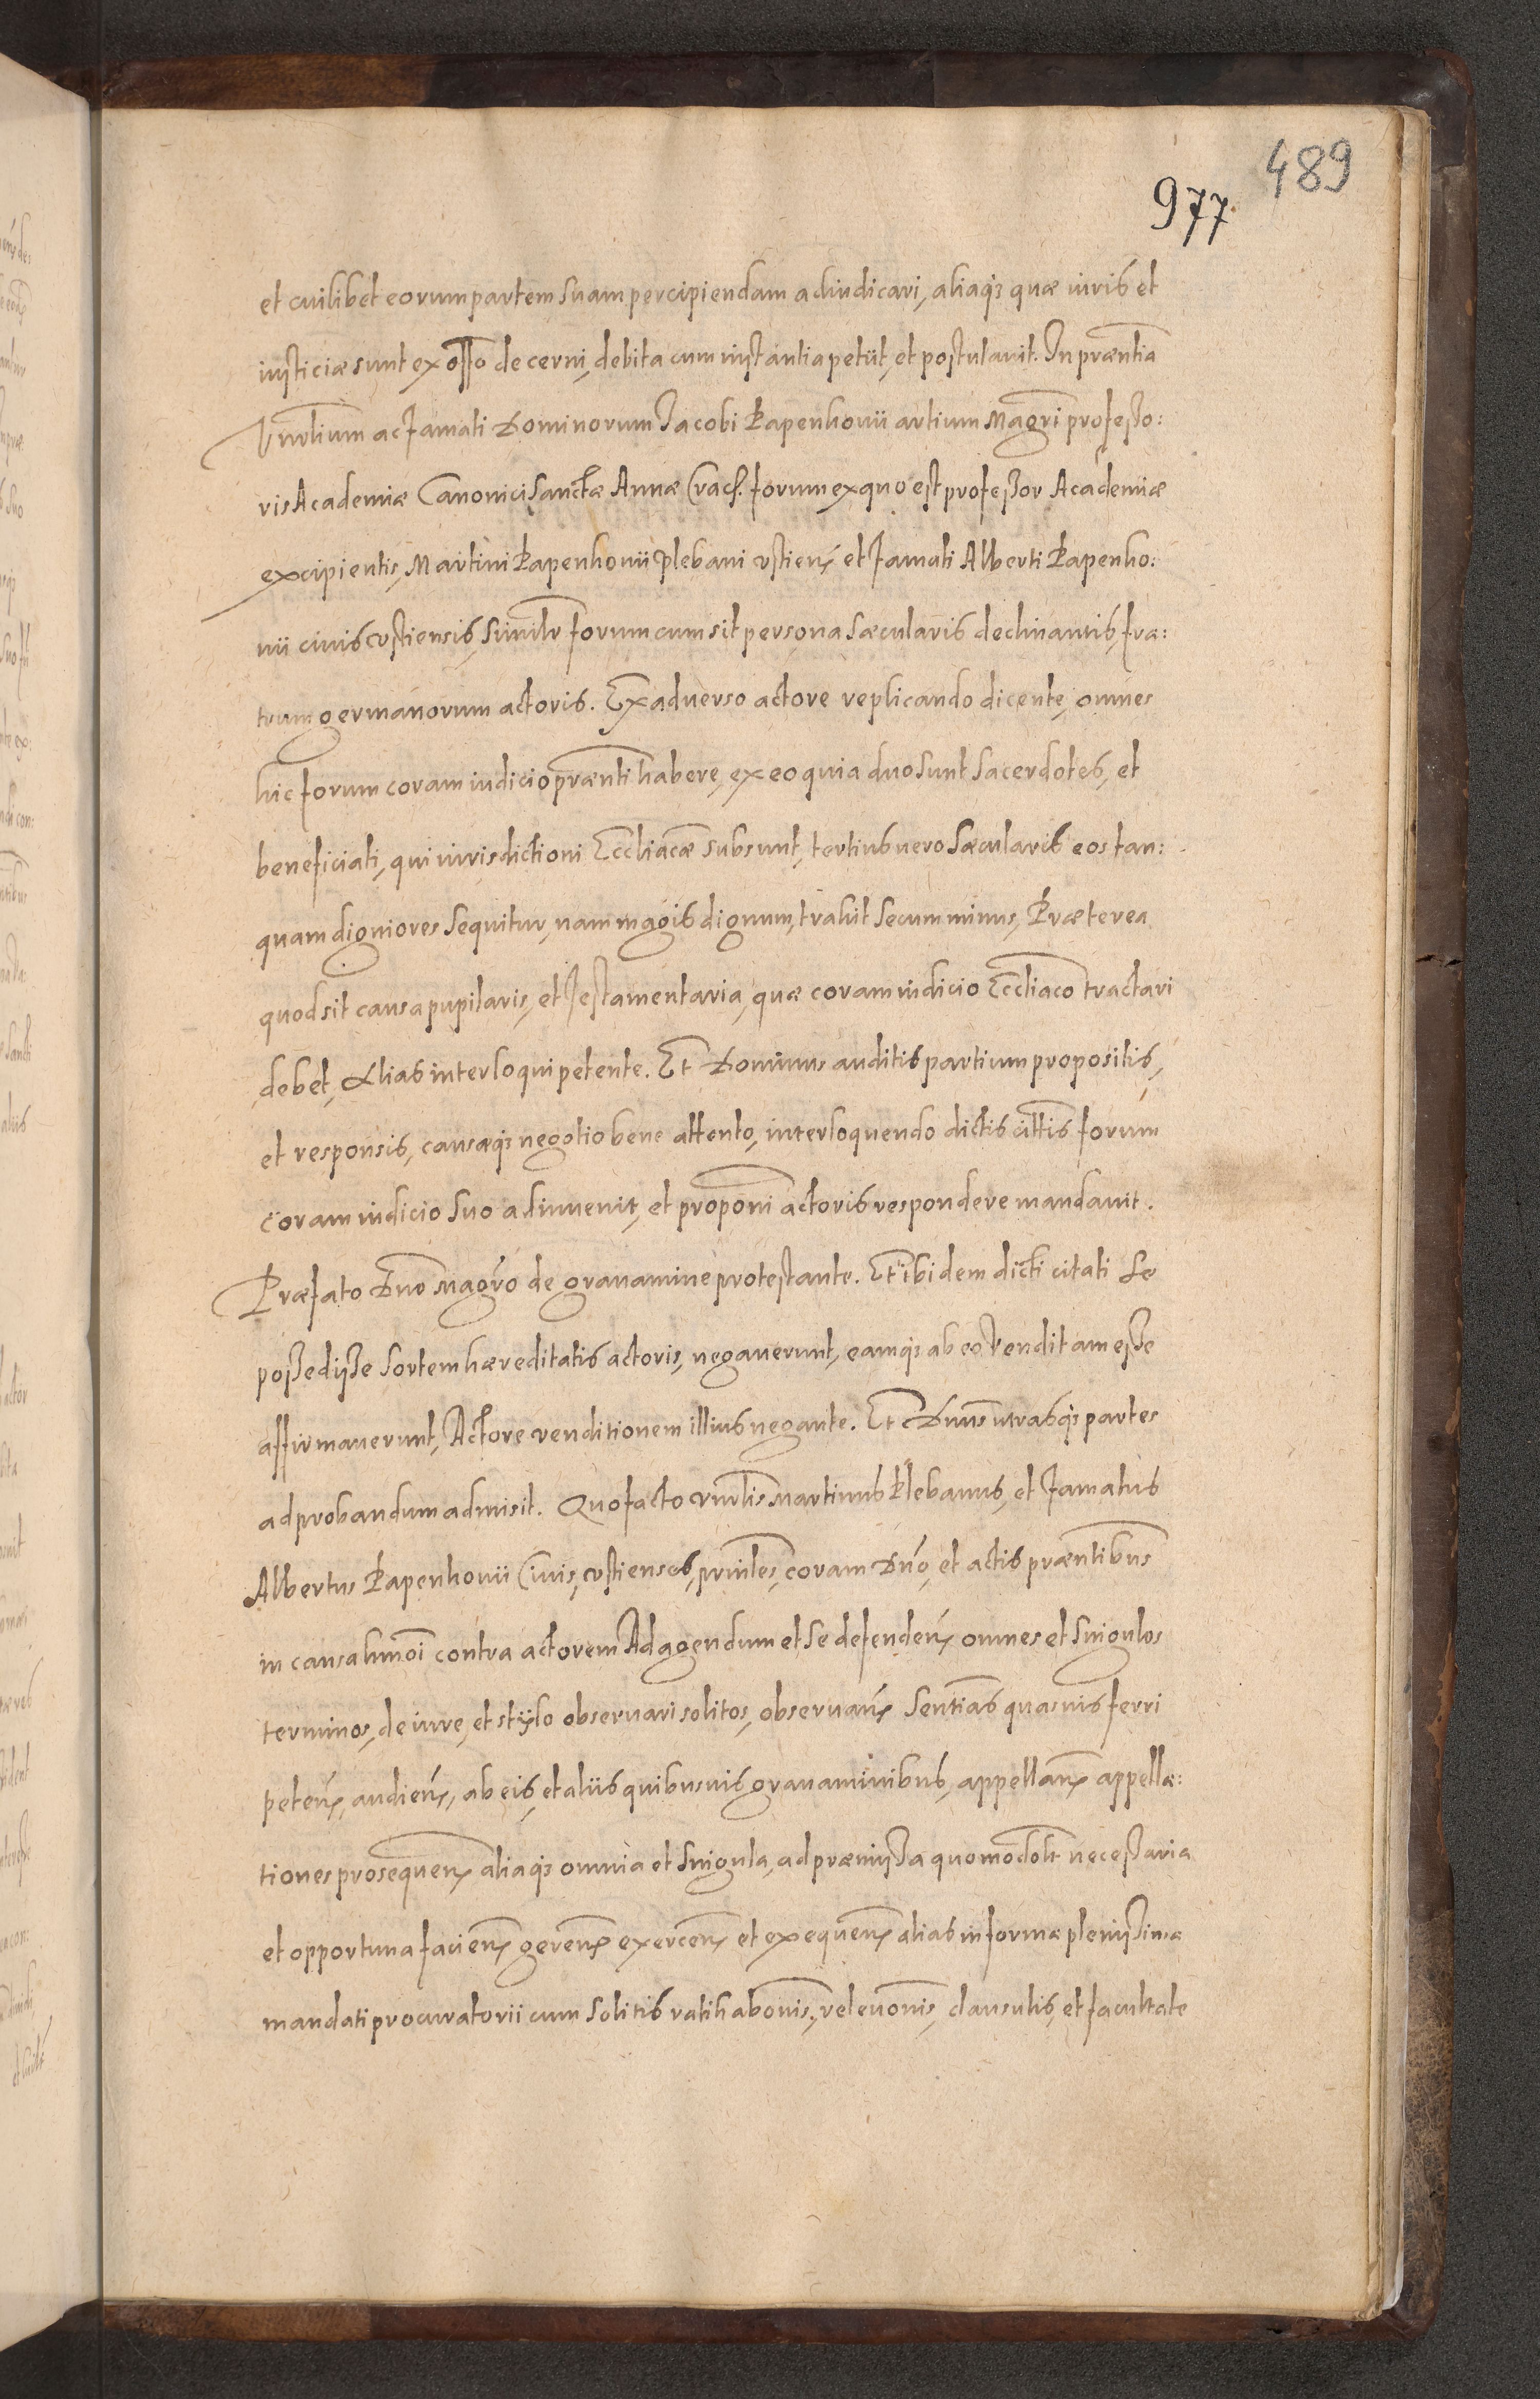 489
977.
et cuilibet eorum partem suam percipiendam adiudicari, aliaq₃ quæ iuris et
iusticiæ sunt ex offo decerni, debita cum instantia petiit, et postulauit. In præntia
Vnrlium ac famati Dominorum Jacobi Papenkouii artium Magri professo:
ris Academiæ Canonici Sanctæ Annæ Crac̃. forum ex quo est professor Academiæ
excipientis, Martini Papenkouii Plebani vstien̄ et famati Alberti Papenko:
uii ciuis vstiensis, similr forum cum sit persona sæcularis declinantis, fra:
trum germanorum actoris. Ex aduerso actore replicando dicente, omnes
hic forum coram iudicio prænti habere, ex eo quia duo sunt Sacerdotes, et
beneficiati, qui iurisdictioni Eccliacæ subsunt, tertius uero sæcularis eos tan:
quam digniores sequitur, nam magis dignum, trahit secum minus, Præterea
quod sit causa pupilaris, et testamentaria, quæ coram iudicio Eccliaco tractari
debet, Alias interloqui petente. Et Dominus auditis partium propositis,
et responsis, causæq₃ negotio bene attento, interloquendo dictis citatis forum
coram iudicio suo adinuenit, et proponi actoris respondere mandauit.
Præfato Dno Magro de grauamine protestante. Et ibidem dicti citati se
possedisse sortem hæreditatis actoris, negauerunt, eamq₃ ab eo venditam esse
affirmauerunt, Actore venditionem illius negante. Et Dnus utrasq₃ partes
ad probandum admisit. Quo facto vnrlis Martinus Plebanus, et famatus
Albertus Papenkouii Ciuis, vstienses, prinles, coram Dno, et actis præntibus
in causa hmoi contra actorem Ad agendum et se defenden̄ omnes et singulos
terminos, de iure, et stylo obseruari solitos, obseruan̄ Sentias quasuis ferri
peten̄, audien̄, ab eis, et aliis quibusuis grauaminibus, appellan̄ appella:
tiones prosequen̄ aliaq₃ omnia et singula, ad præmissa quomodolt necessaria
et opportuna facien̄ geren̄ exercen̄ et exequen̄ alias in forma plenissima
mandati procuratorii cum solitis ratihabonis, releuonis, clausulis, et facultate